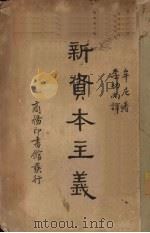 尼著
譯
新資本主義
商務印書館發行